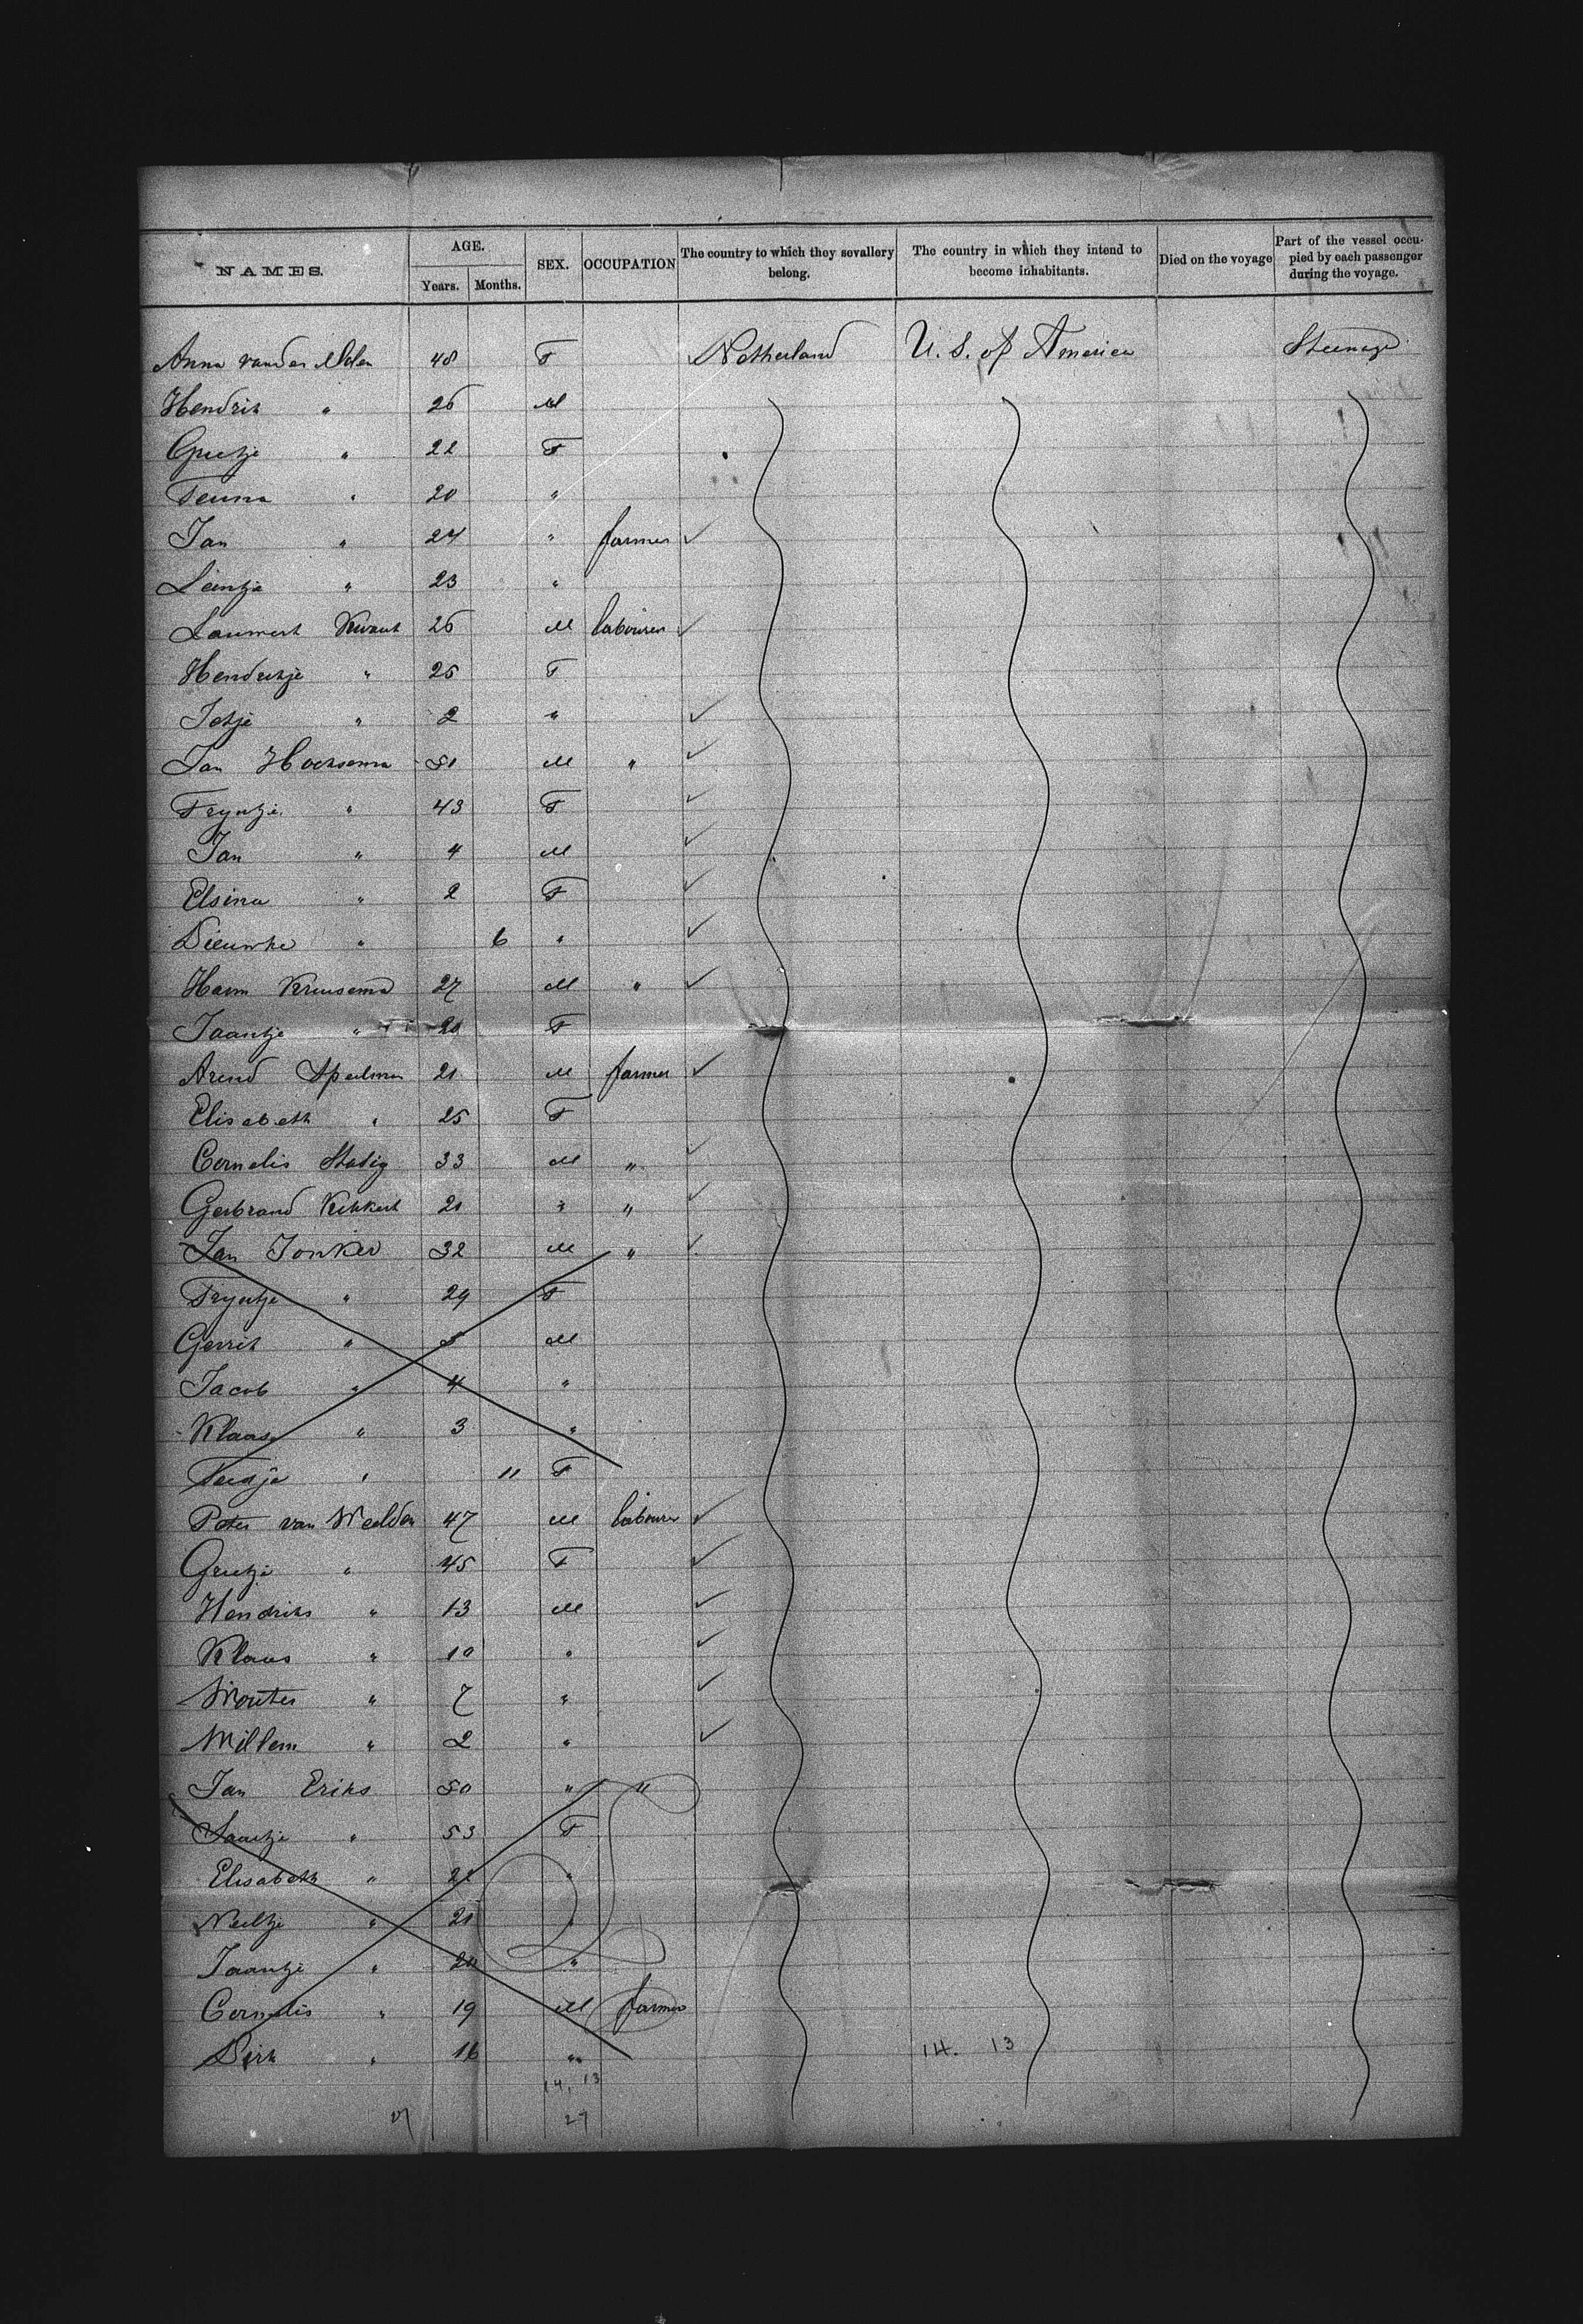 NAMES. AGE. SEX. OCCUPATION The country to which they sevallery belong. The country in which they intend to become inhabitants. Died on the voyage Part of the vessel occupied by each passenger during the voyage.
Years. Months.
Anna van der 48 F Netherland U. S. of America Steerage
Hendrik " 26 M
Grietje " 22 F
Teuna " 20 "
Jan " 24 " farmer ✓
Leentje " 23 "
Lammert Kwant 26 M labourer ✓
Hendrikje " 25 F
Jetje " 2 " ✓
Jan Hoeksema 51 M " ✓
Tryntje " 43 F ✓
Jan " 4 M ✓
Elsina " 2 F ✓
Dieuwke " 6 " ✓
Harm Kruisema 27 M " ✓
Jaantje " 20 F
Arend Speelman 21 M farmer ✓
Elisabeth " 25 F
Cornelis Stadig 33 M " ✓
Gerbrand Kikkert 21 " " ✓
Jan Jonker 32 M " ✓
Tryntje " 29 F
Gerrit " 5 M
Jacob " 4 "
Klaas " 3 "
" 11 F
Peter van Weelden 47 M labourer ✓
Grietje " 45 F ✓
Hendriks " 13 M ✓
Klaas " 10 " ✓
Wouter " 7 " ✓
Willem " 2 " ✓
Jan Eriks 50 " "
" 53 F
Elisabeth " 22 "
Neeltje " 21 "
Jaantje " 20 "
Cornelis " 19 M farmer
Dirk " 16 " 14. 13
14, 13
27